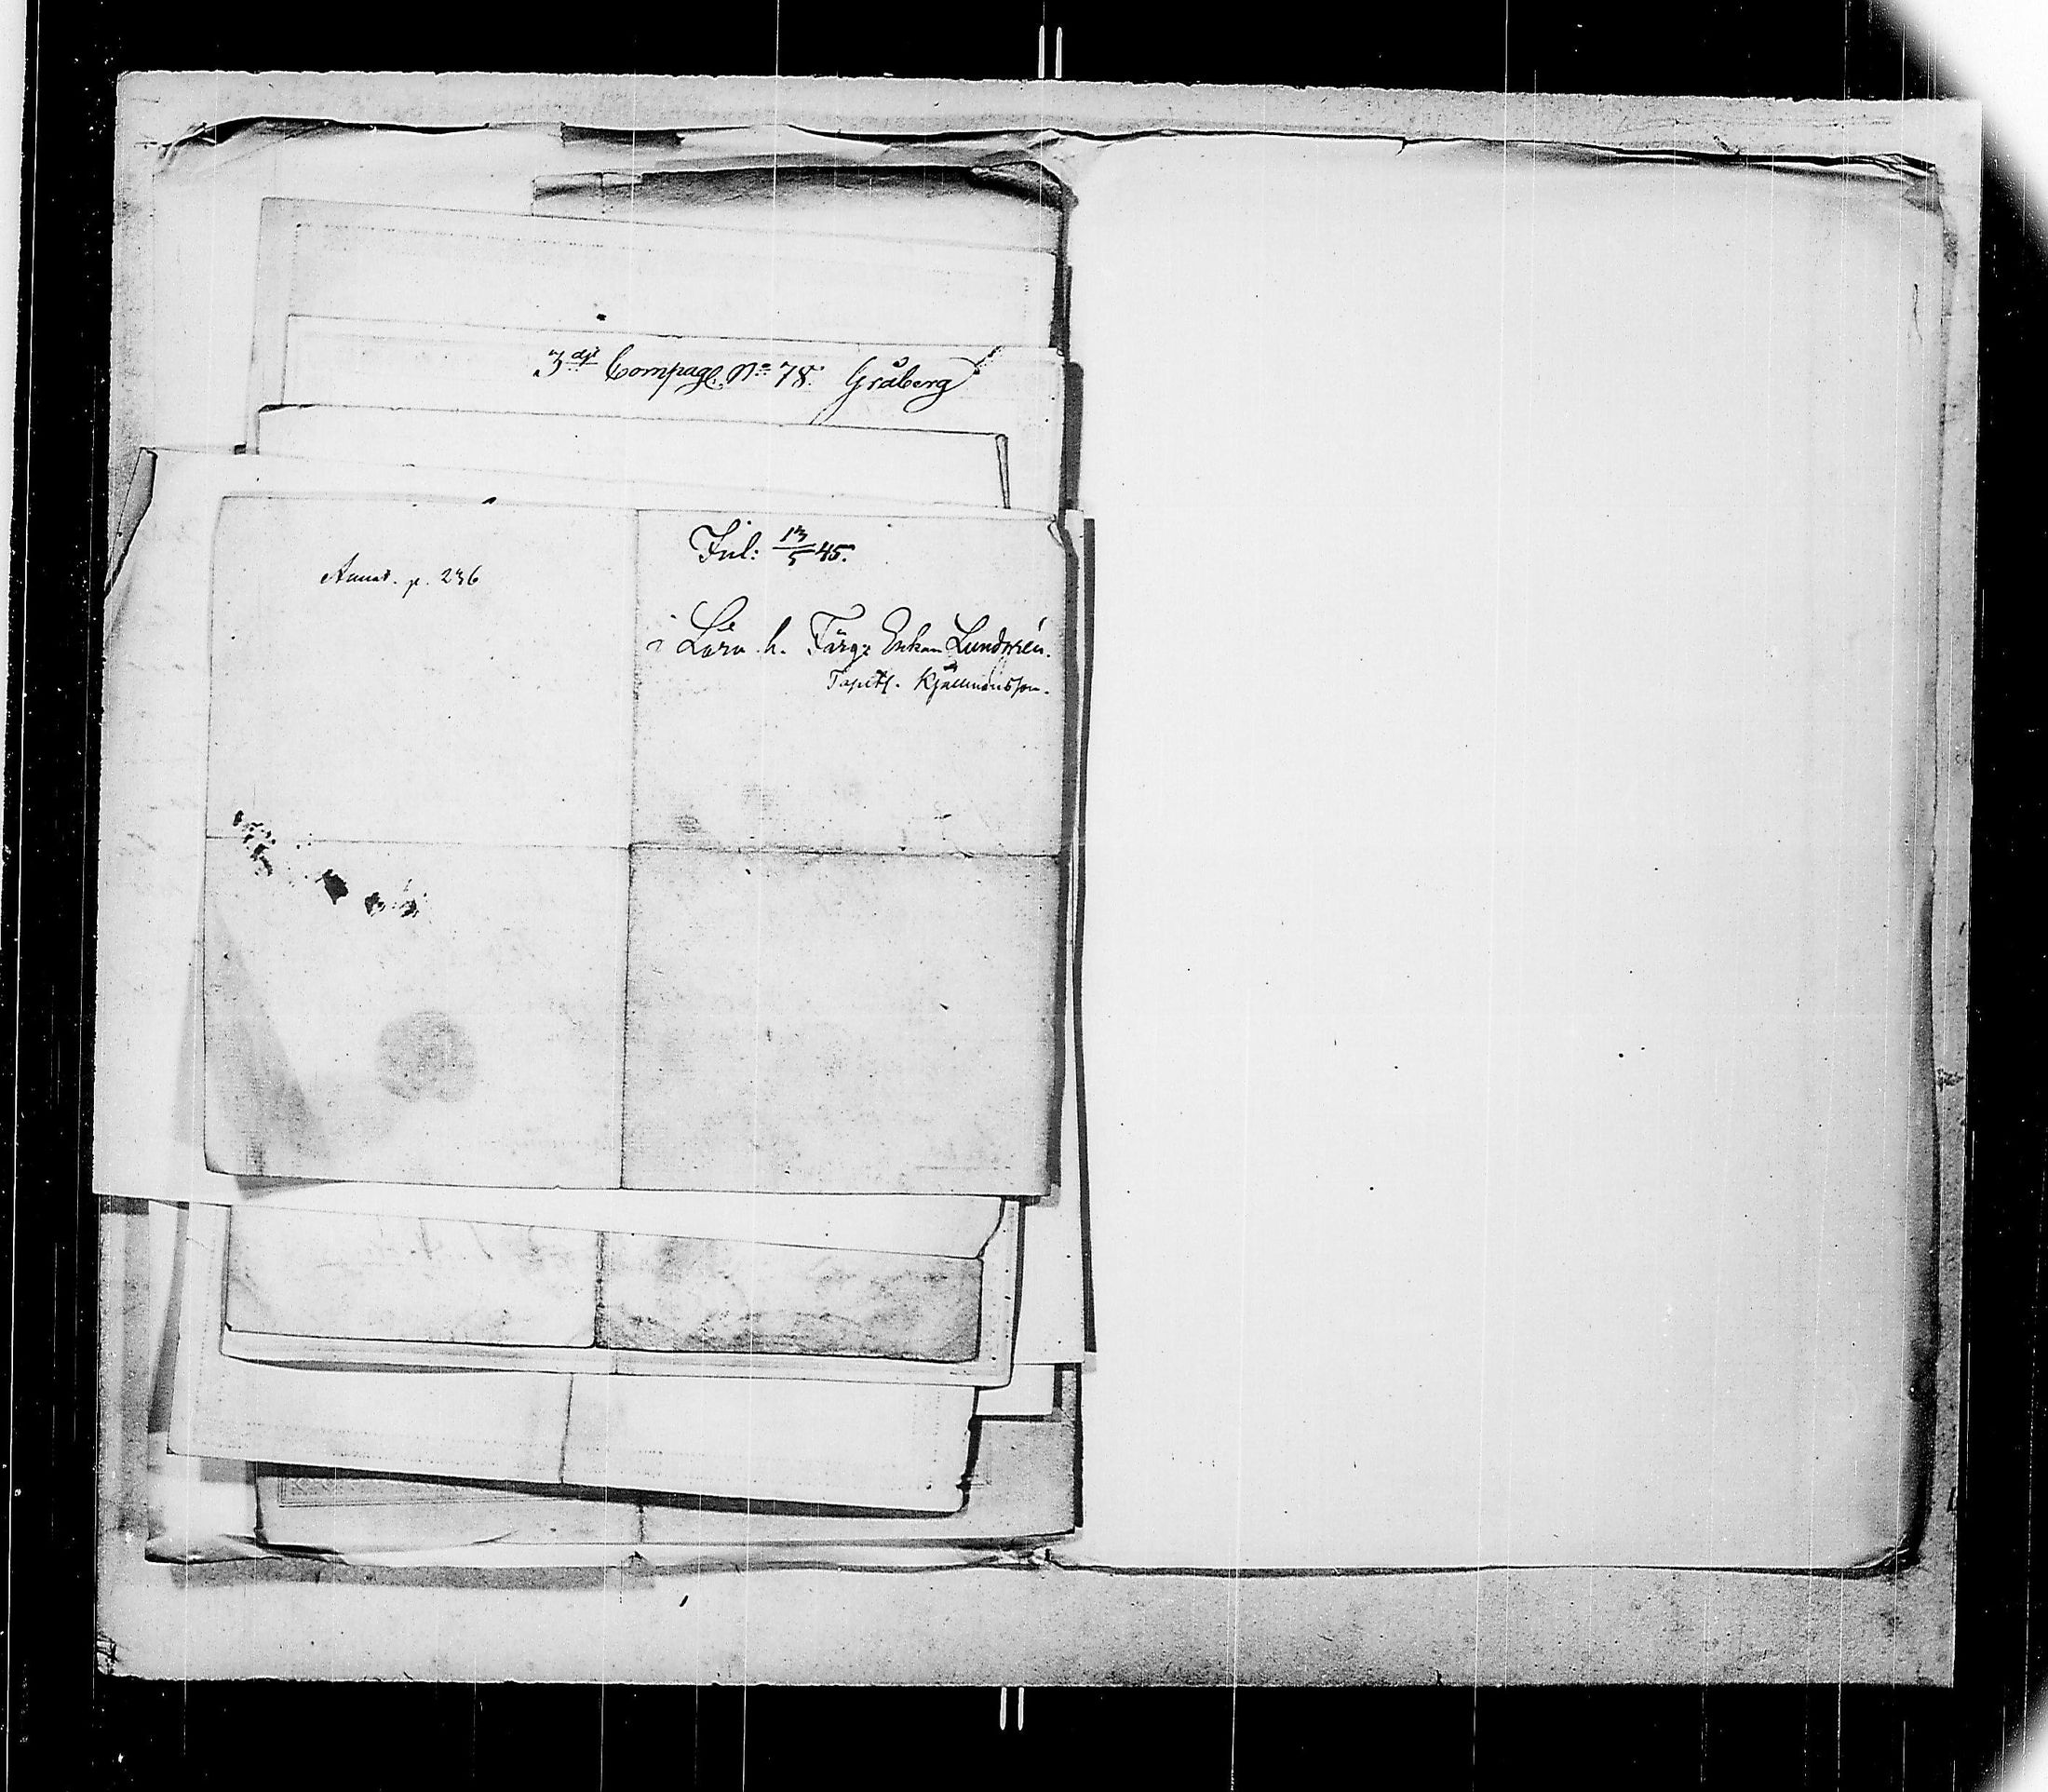 3dje Compag. No 78. Gråberg
Annot. p. 236
Inl: 13/5 45.
i Lära h. Färg: Enkan Lundgrén.
Tapets. Kjällmansson.